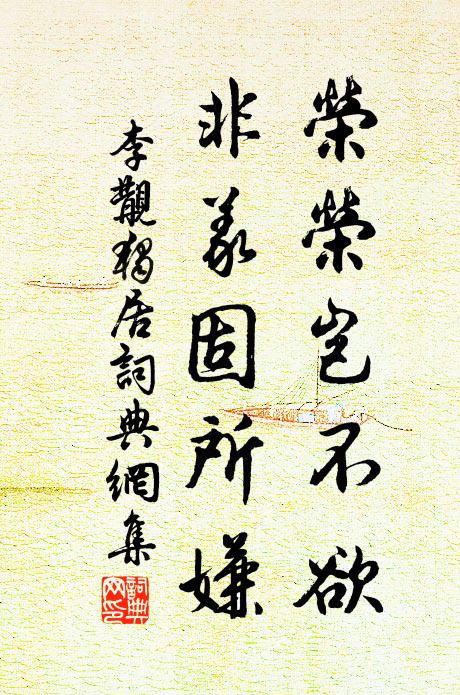 榮榮豈不欲
非義固所嫌
李覯獨居詞典網集
詞典網印